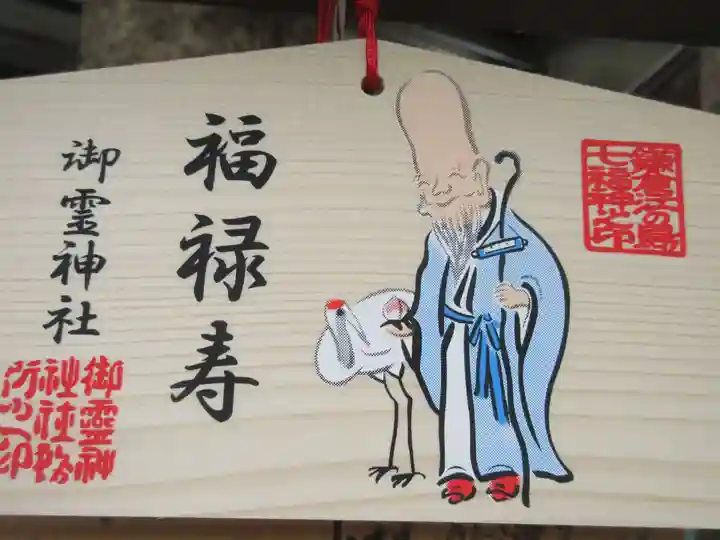 鎌倉江の島
七福神之印
福禄寿
御霊神社
御霊神
社社務
所之印